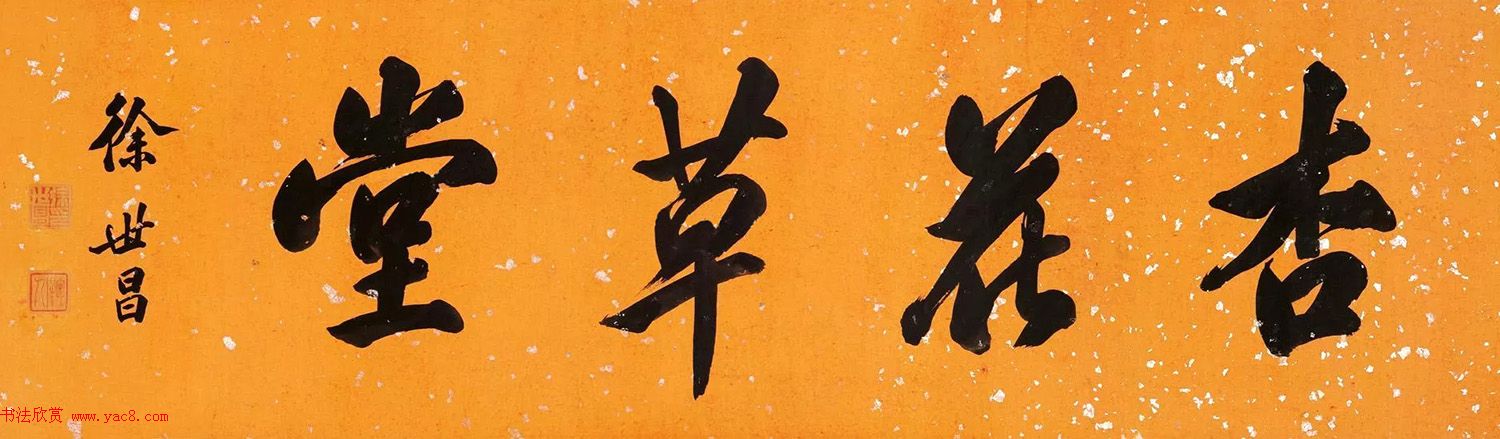 杏花草堂
徐世昌
书法欣赏 www.yac8.com